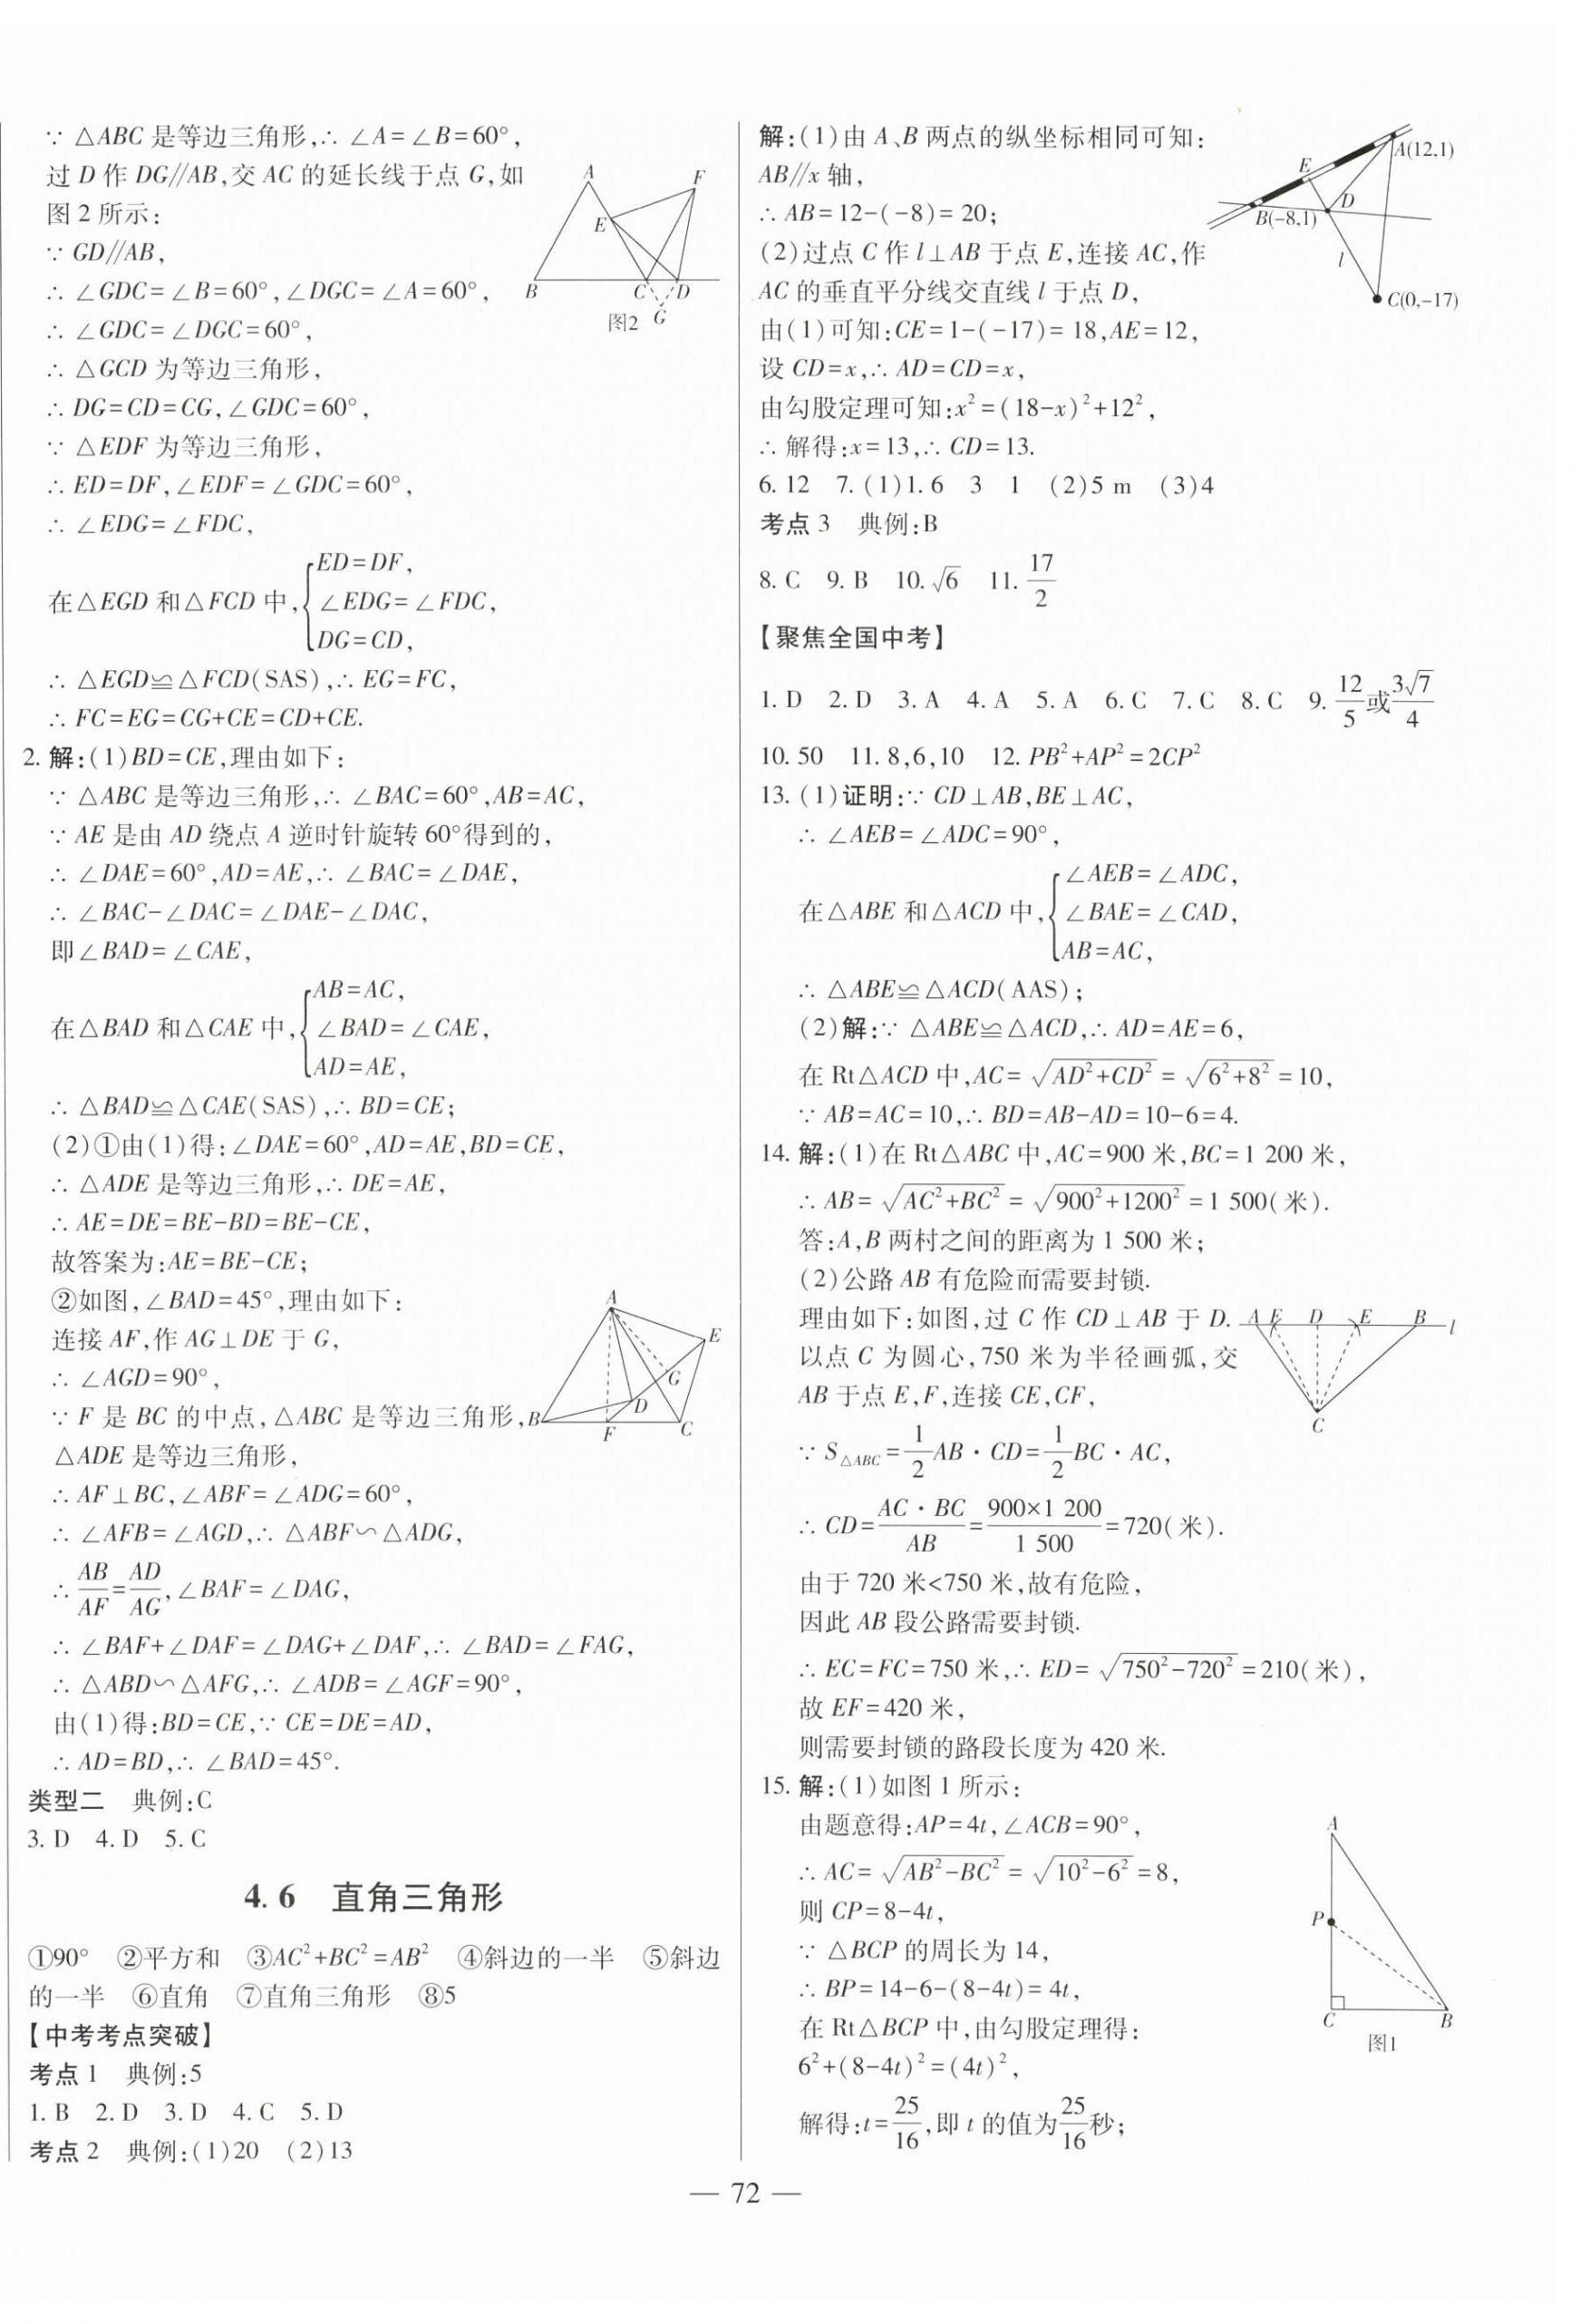 ∵ △ABC 是等边三角形,∴ ∠A=∠B=60°,
过 D 作 DG∥AB,交 AC 的延长线于点 G,如
图 2 所示:
∵ GD∥AB,
∴ ∠GDC=∠B=60°,∠DGC=∠A=60°,
∴ ∠GDC=∠DGC=60°,
∴ △GCD 为等边三角形,
∴ DG=CD=CG,∠GDC=60°,
∵ △EDF 为等边三角形,
∴ ED=DF,∠EDF=∠GDC=60°,
∴ ∠EDG=∠FDC,
在△EGD 和△FCD 中,{ED=DF,
∠EDG=∠FDC,
DG=CD,
∴ △EGD≌△FCD(SAS),∴ EG=FC,
∴ FC=EG=CG+CE=CD+CE.
A
F
E
B
C
D
G
图2
2. 解:(1)BD=CE,理由如下:
∵ △ABC 是等边三角形,∴ ∠BAC=60°,AB=AC,
∵ AE 是由 AD 绕点 A 逆时针旋转 60°得到的,
∴ ∠DAE=60°,AD=AE,∴ ∠BAC=∠DAE,
∴ ∠BAC-∠DAC=∠DAE-∠DAC,
即∠BAD=∠CAE,
在△BAD 和△CAE 中,{AB=AC,
∠BAD=∠CAE,
AD=AE,
∴ △BAD≌△CAE(SAS),∴ BD=CE;
(2)①由(1)得:∠DAE=60°,AD=AE,BD=CE,
∴ △ADE 是等边三角形,∴ DE=AE,
∴ AE=DE=BE-BD=BE-CE,
故答案为:AE=BE-CE;
②如图,∠BAD=45°,理由如下:
连接 AF,作 AG⊥DE 于 G,
∴ ∠AGD=90°,
∵ F 是 BC 的中点,△ABC 是等边三角形,
△ADE 是等边三角形,
∴ AF⊥BC,∠ABF=∠ADG=60°,
∴ ∠AFB=∠AGD,∴ △ABF∽△ADG,
∴ AB/AF=AD/AG,∠BAF=∠DAG,
∴ ∠BAF+∠DAF=∠DAG+∠DAF,∴ ∠BAD=∠FAG,
∴ △ABD∽△AFG,∴ ∠ADB=∠AGF=90°,
由(1)得:BD=CE,∵ CE=DE=AD,
∴ AD=BD,∴ ∠BAD=45°.
A
E
G
D
B
F
C
类型二　典例:C
3. D　4. D　5. C
4. 6　直角三角形
①90°　②平方和　③AC²+BC²=AB²　④斜边的一半　⑤斜边
的一半　⑥直角　⑦直角三角形　⑧5
【中考考点突破】
考点 1　典例:5
1. B　2. D　3. D　4. C　5. D
考点 2　典例:(1)20　(2)13
解:(1)由 A、B 两点的纵坐标相同可知:
AB∥x 轴,
∴ AB=12-(-8)=20;
(2)过点 C 作 l⊥AB 于点 E,连接 AC,作
AC 的垂直平分线交直线 l 于点 D,
由(1)可知:CE=1-(-17)=18,AE=12,
设 CD=x,∴ AD=CD=x,
由勾股定理可知:x²=(18-x)²+12²,
∴ 解得:x=13,∴ CD=13.
A(12,1)
E
D
B(-8,1)
l
C(0,-17)
6. 12　7. (1)1. 6　3　1　(2)5 m　(3)4
考点 3　典例:B
8. C　9. B　10. √6　11. 17/2
【聚焦全国中考】
1. D　2. D　3. A　4. A　5. A　6. C　7. C　8. C　9. 12/5或3√7/4
10. 50　11. 8,6,10　12. PB²+AP²=2CP²
13. (1)证明:∵ CD⊥AB,BE⊥AC,
∴ ∠AEB=∠ADC=90°,
在△ABE 和△ACD 中,{∠AEB=∠ADC,
∠BAE=∠CAD,
AB=AC,
∴ △ABE≌△ACD(AAS);
(2)解:∵ △ABE≌△ACD,∴ AD=AE=6,
在 Rt△ACD 中,AC=√(AD²+CD²)=√(6²+8²)=10,
∵ AB=AC=10,∴ BD=AB-AD=10-6=4.
14. 解:(1)在 Rt△ABC 中,AC=900 米,BC=1 200 米,
∴ AB=√(AC²+BC²)=√(900²+1200²)=1 500(米).
答:A,B 两村之间的距离为 1 500 米;
(2)公路 AB 有危险而需要封锁.
理由如下:如图,过 C 作 CD⊥AB 于 D.
以点 C 为圆心,750 米为半径画弧,交
AB 于点 E,F,连接 CE,CF,
∵ S△ABC=1/2AB·CD=1/2BC·AC,
∴ CD=AC·BC/AB=900×1 200/1 500=720(米).
由于 720 米<750 米,故有危险,
因此 AB 段公路需要封锁.
∴ EC=FC=750 米,∴ ED=√(750²-720²)=210(米),
故 EF=420 米,
则需要封锁的路段长度为 420 米.
A
D
E
B
l
C
15. 解:(1)如图 1 所示:
由题意得:AP=4t,∠ACB=90°,
∴ AC=√(AB²-BC²)=√(10²-6²)=8,
则 CP=8-4t,
∵ △BCP 的周长为 14,
∴ BP=14-6-(8-4t)=4t,
在 Rt△BCP 中,由勾股定理得:
6²+(8-4t)²=(4t)²,
解得:t=25/16,即 t 的值为25/16秒;
A
P
C
B
图1
— 72 —